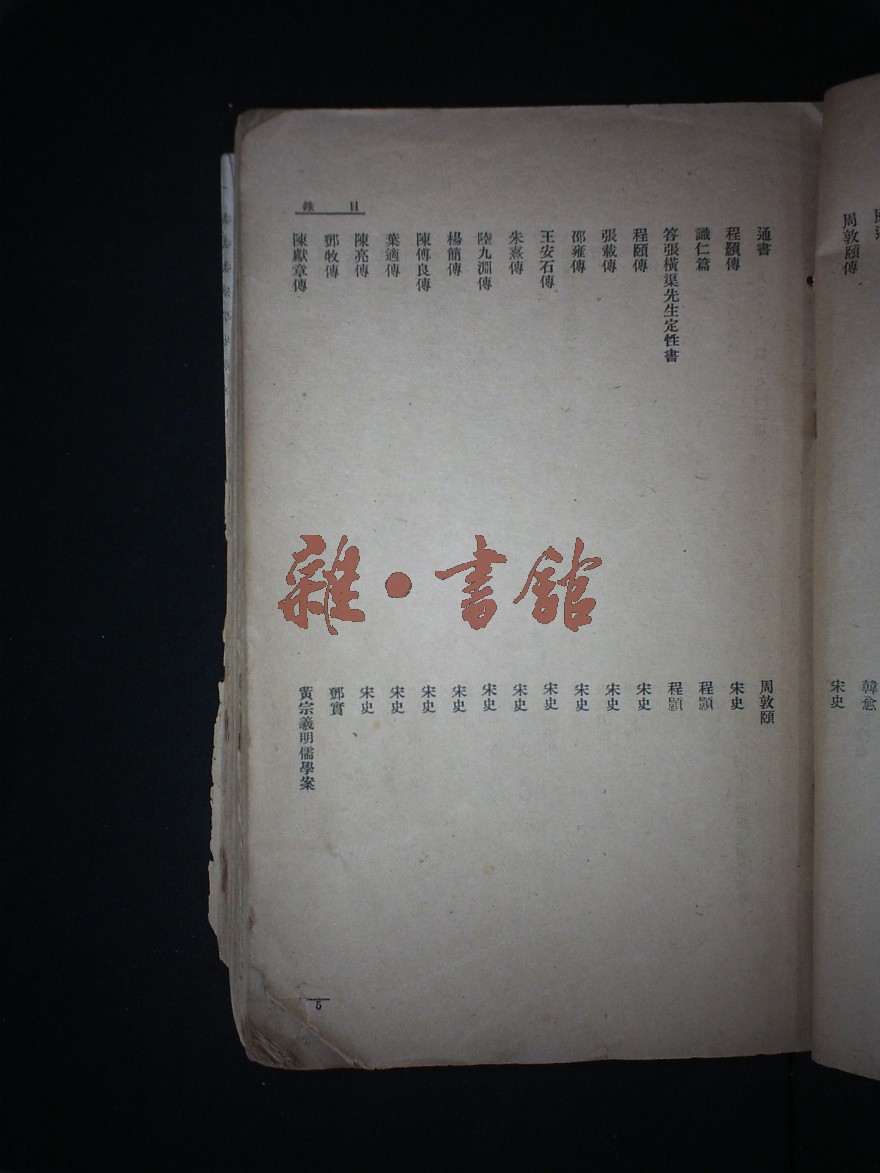 韓愈
周敦頤傳 宋史
目錄
通書 周敦頤
程顥傳 宋史
識仁篇 程顥
答張橫渠先生定性書 程顥
程頤傳 宋史
張載傳 宋史
邵雍傳 宋史
王安石傳 宋史
朱熹傳 宋史
陸九淵傳 宋史
楊簡傳 宋史
陳傅良傳 宋史
葉適傳 宋史
陳亮傳 宋史
鄧牧傳 鄧實
陳獻章傳 黃宗羲明儒學案
5
雜·書館